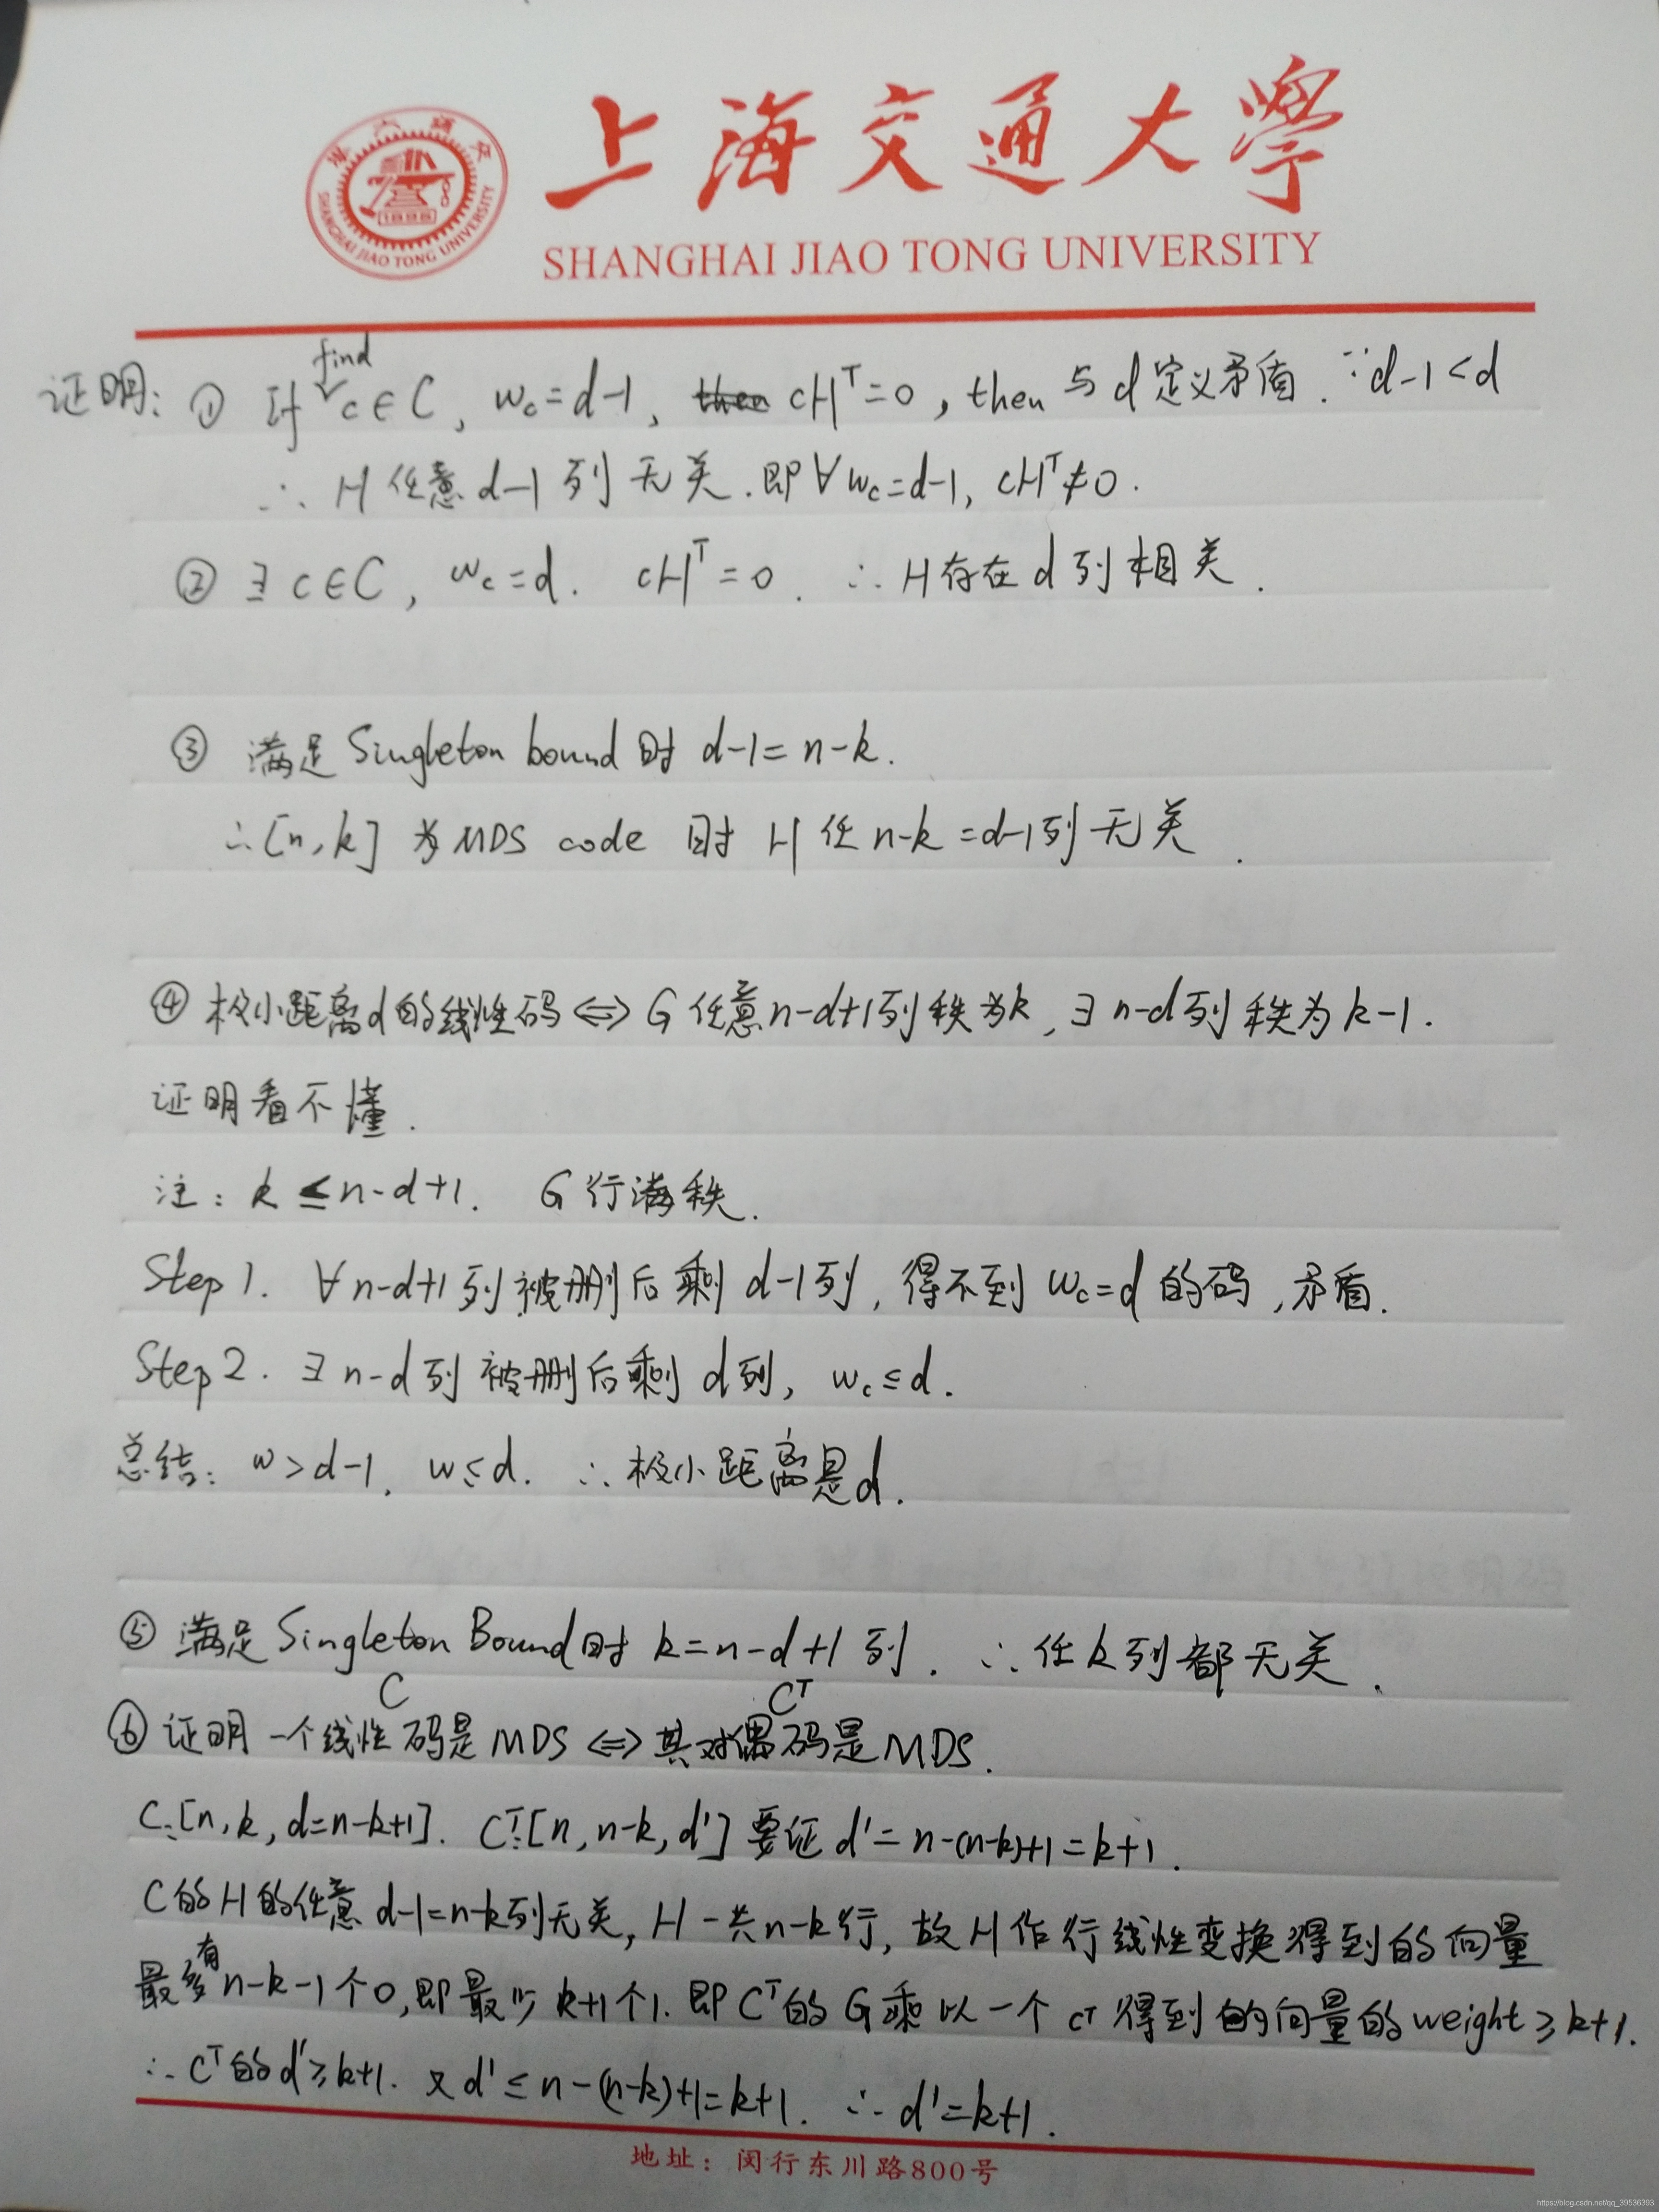 上海交通大學
SHANGHAI JIAO TONG UNIVERSITY
SHANGHAI JIAO TONG UNIVERSITY
1896
证明: ① If find c∈C, wc=d-1, then cHᵀ=0, then 与d定义矛盾. ∵d-1<d
∴ H任意d-1列无关. 即∀wc=d-1, cHᵀ≠0.
② ∃c∈C, wc=d. cHᵀ=0. ∴H存在d列相关.
③ 满足Singleton bound时 d-1=n-k.
∴[n,k] 为MDS code 时 H任n-k=d-1列无关.
④ 极小距离d的线性码⇔G任意n-d+1列秩为k, ∃n-d列秩为k-1.
证明看不懂.
注: k≤n-d+1. G行满秩.
Step 1. ∀n-d+1列被删后剩d-1列, 得不到wc=d的码, 矛盾.
Step 2. ∃n-d列被删后剩d列, wc≤d.
总结: w>d-1, w≤d. ∴极小距离是d.
⑤ 满足Singleton Bound时 k=n-d+1列. ∴任k列都无关.
C Cᵀ
⑥ 证明一个线性码是MDS⇔其对偶码是MDS.
C:[n,k,d=n-k+1]. Cᵀ:[n,n-k,d'] 要证d'=n-(n-k)+1=k+1.
C的H的任意d-1=n-k列无关, H一共n-k行, 故H作行线性变换得到的向量
最多有n-k-1个0, 即最少k+1个1. 即Cᵀ的G乘以一个cᵀ得到的向量的weight≥k+1.
∴Cᵀ的d'≥k+1. 又d'≤n-(n-k)+1=k+1. ∴d'=k+1.
地址: 闵行东川路800号
https://blog.csdn.net/qq_39536393